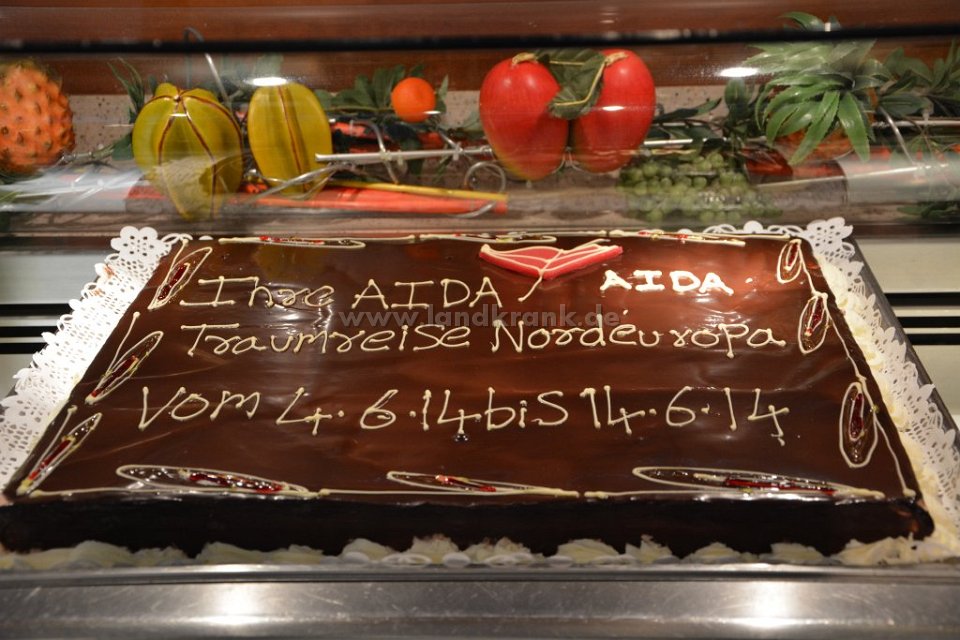 Ihre AIDA AIDA
www.landkrank.de
Traumreise Nordéuropa
Vom 4.6.14 bis 14.6.14